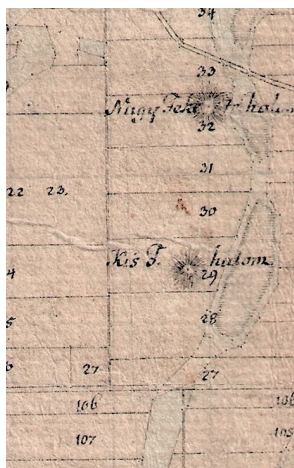 34
33
Nagy Fekete halom
32
31
22 23.
30
Kis F. halom
4 29
5 28
6 27 27
106 106
107 105